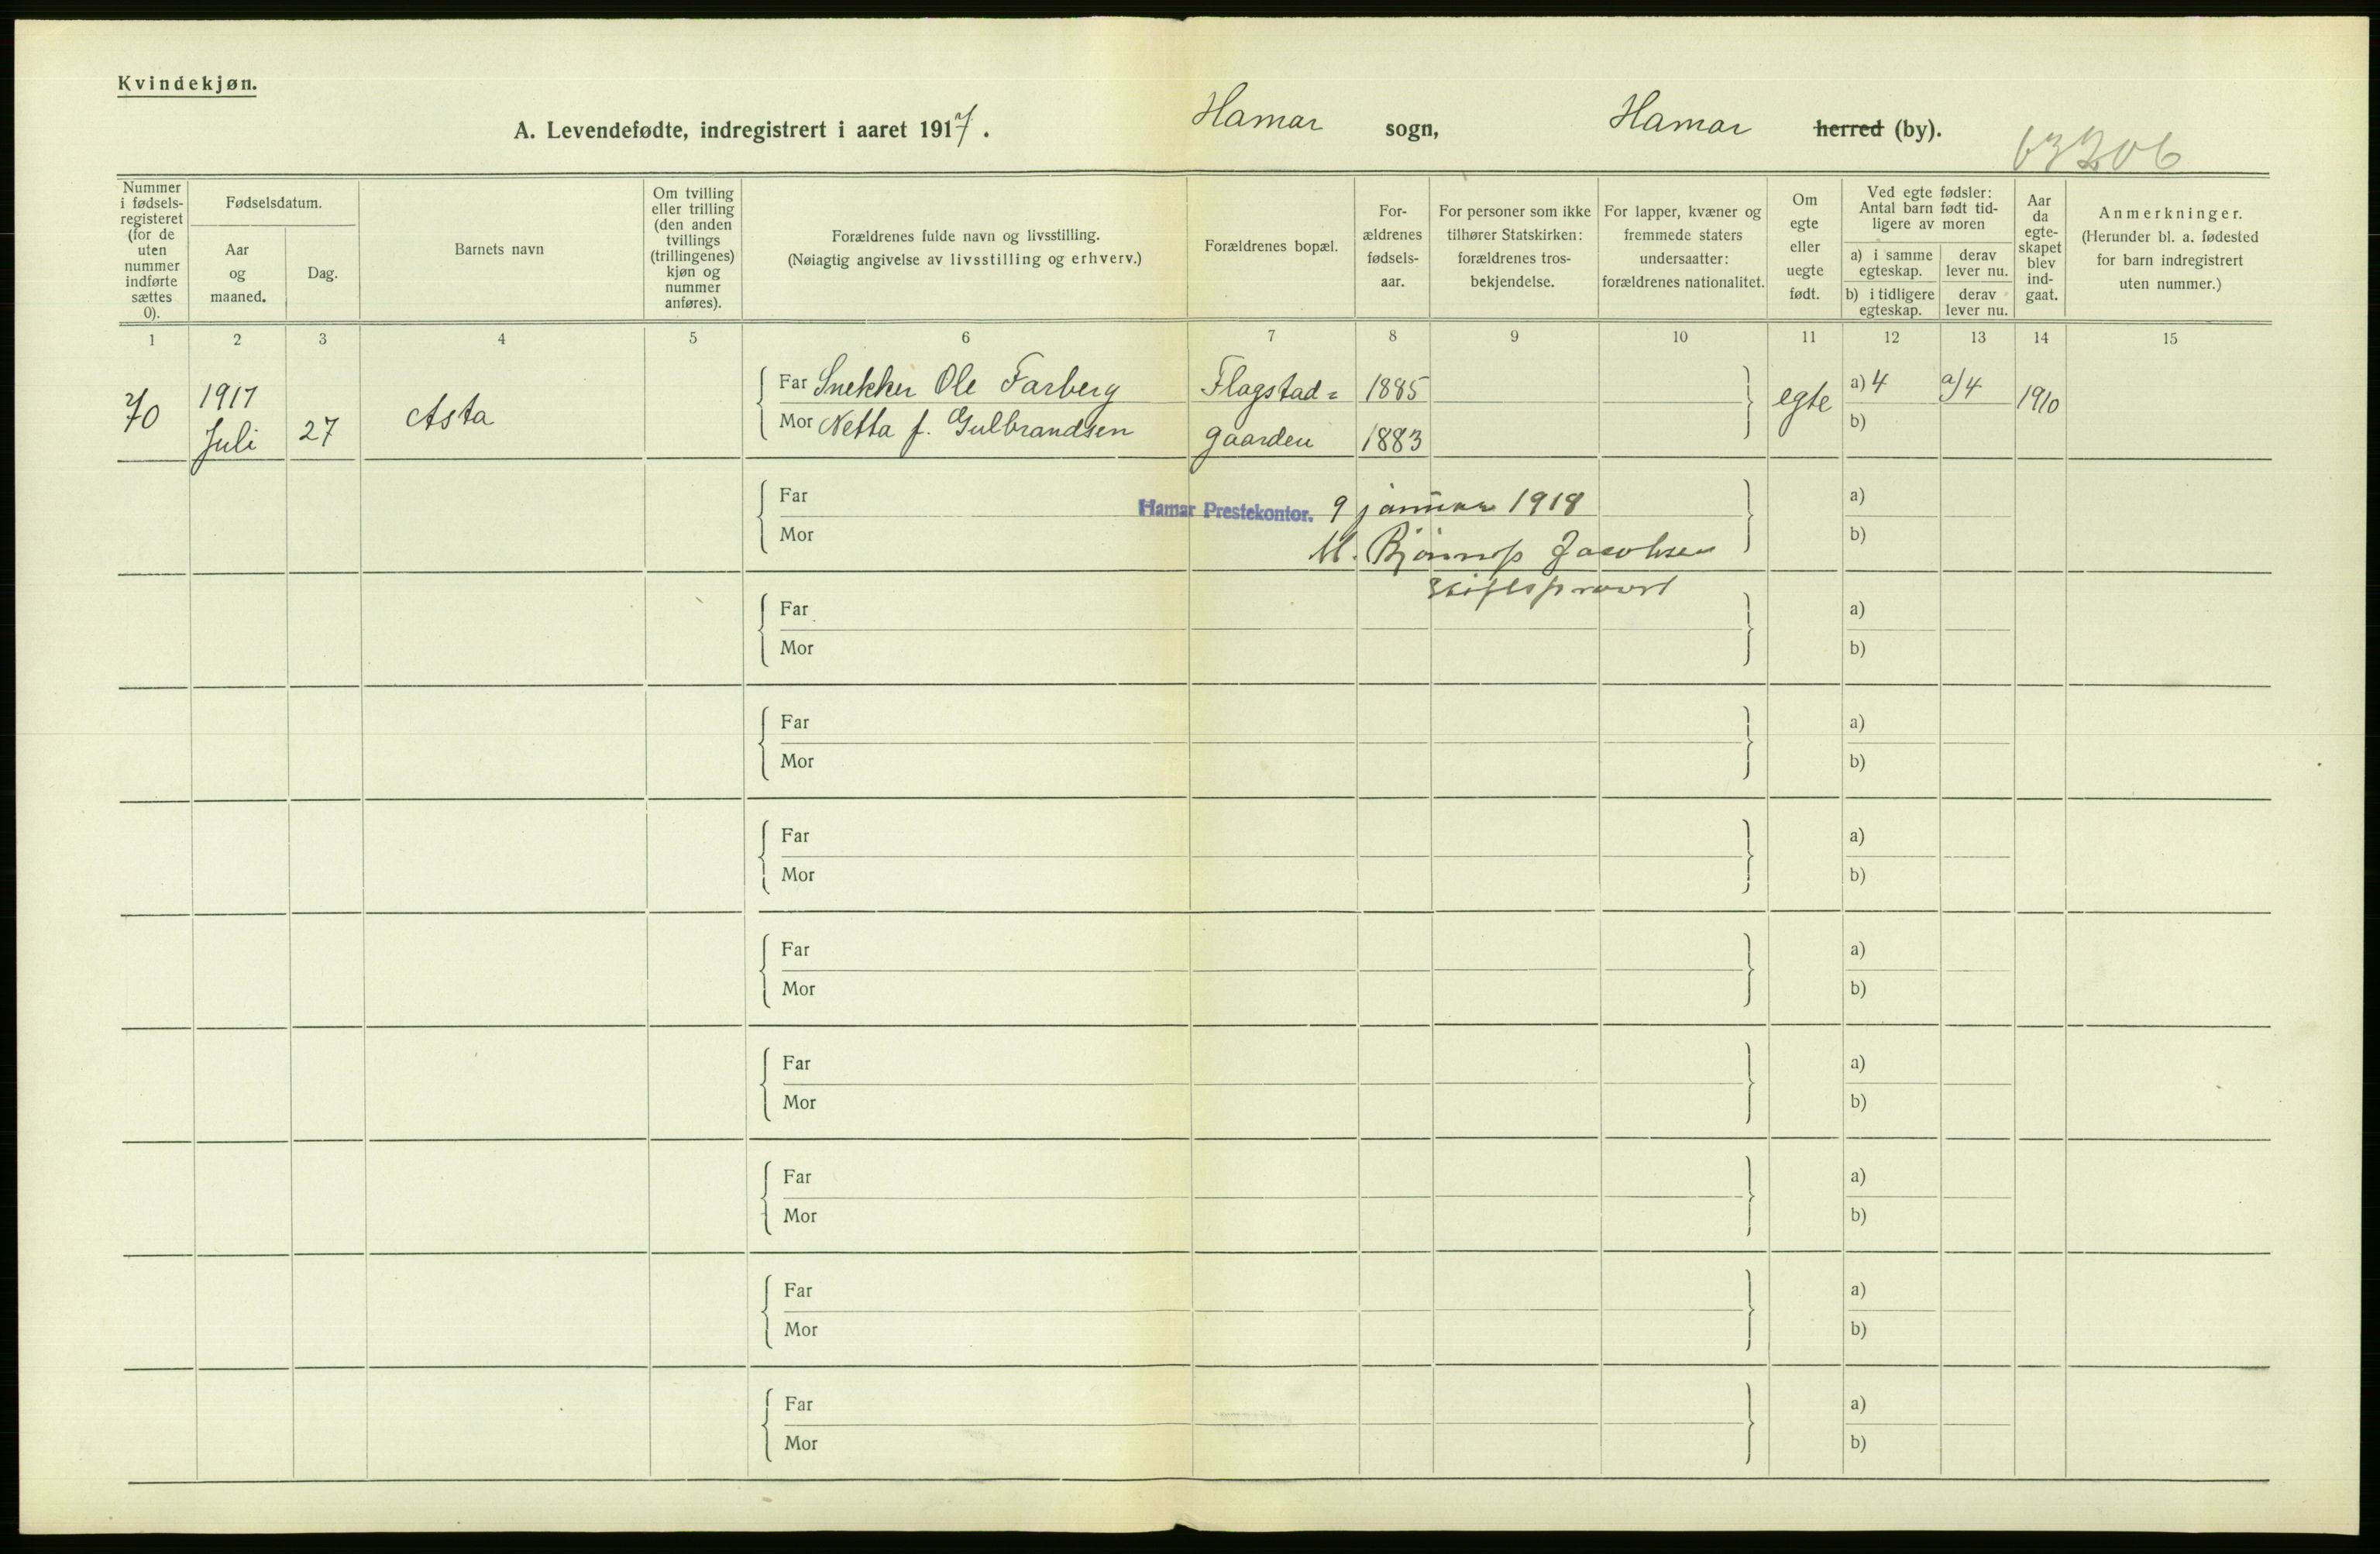 Kvindekjøn.
A. Levendefødte, indregistrert i aaret 1917. Hamar sogn, Hamar herred (by).
63306
Nummer i fødsels-registeret (for de uten nummer indførte sættes 0).
Fødselsdatum.
Aar og maaned.
Dag.
Barnets navn
Om tvilling eller trilling (den anden tvillings (trillingenes) kjøn og nummer anføres).
Forældrenes fulde navn og livsstilling.
(Nøiagtig angivelse av livsstilling og erhverv.)
Forældrenes bopæl.
For-ældrenes fødsels-aar.
For personer som ikke tilhører Statskirken: forældrenes tros-bekjendelse.
For lapper, kvæner og fremmede staters undersaatter: forældrenes nationalitet.
Om egte eller uegte født.
Ved egte fødsler: Antal barn født tid-ligere av moren
a) i samme egteskap.
derav lever nu.
b) i tidligere egteskap.
derav lever nu.
Aar da egte-skapet blev ind-gaat.
Anmerkninger.
(Herunder bl. a. fødested for barn indregistrert uten nummer.)
1 2 3 4 5 6 7 8 9 10 11 12 13 14 15
70 1917 Juli 27 Asta
Far Snekker Ole Farberg Flagstad= 1885 egte a) 4 a/4 1910
Mor Netta f. Gulbrandsen gaarden 1883 b)
Far Hamar Prestekontor. 9 januar 1918 a)
Mor M. Bjønness Jacobsen b)
Stiftsprovst
Far a)
Mor b)
Far a)
Mor b)
Far a)
Mor b)
Far a)
Mor b)
Far a)
Mor b)
Far a)
Mor b)
Far a)
Mor b)
Far a)
Mor b)